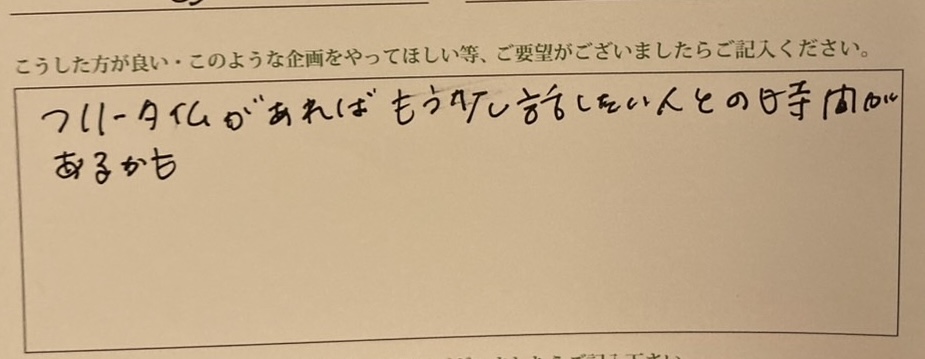 こうした方が良い・このような企画をやってほしい等、ご要望がございましたらご記入ください。
フリータイムがあればもう少し話したい人との時間が
あるかも